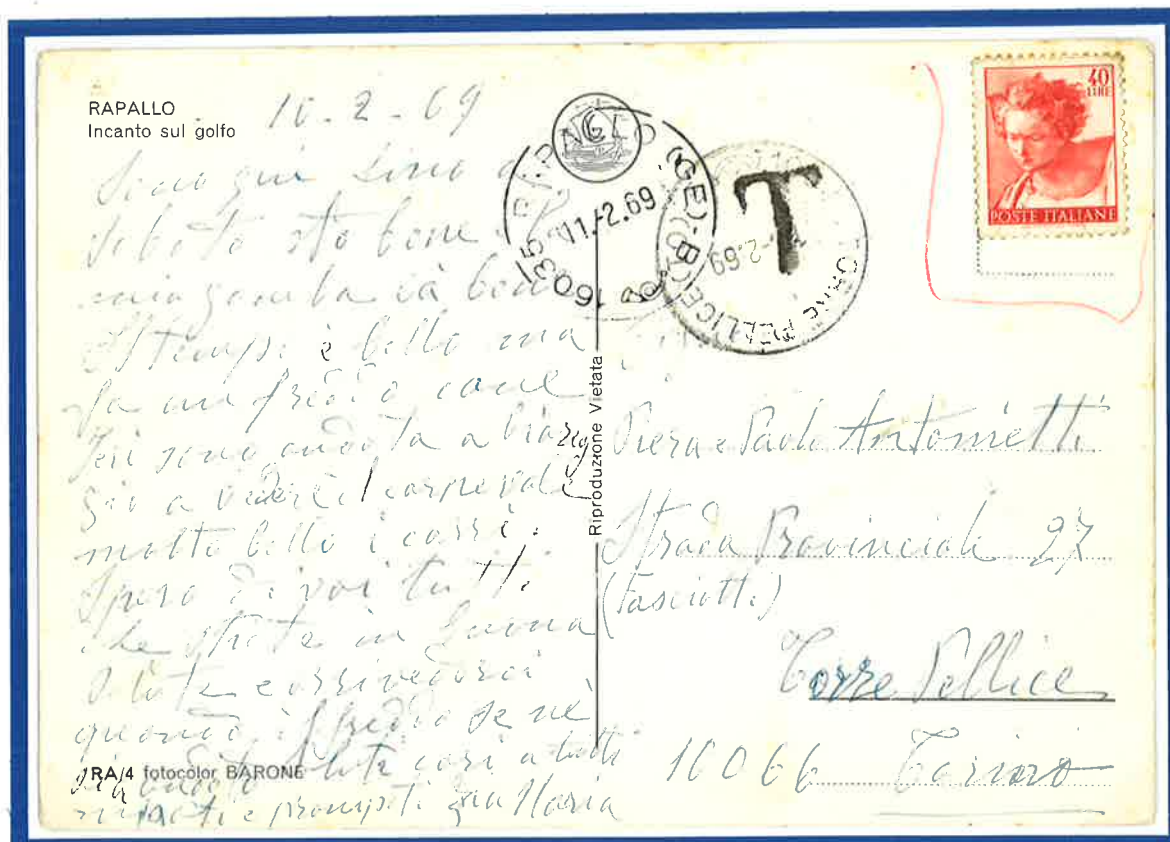 RAPALLO
Incanto sul golfo
10-2-69
Sono qui sino a
sto bene
mia gamba và bene
Il tempo è bello ma
fa un freddo cane
Ieri sono andata a Viareg
gio a vedere il carnevale
molto belli i corsi.
Spero di voi tutti
che state in buona
salute e arrivederci
quando il freddo se nè
cari a tutti
Maria
RA/4 fotocolor BARONE
Riproduzione Vietata
16035 RAPALLO (GE)
11.-2.69
T
-2.69
TORRE PELLICE
40
LIRE
POSTE ITALIANE
Piera e Paolo Antonietti
Strada Provinciale 27
(Fasciotti)
Torre Pellice
10066 Torino